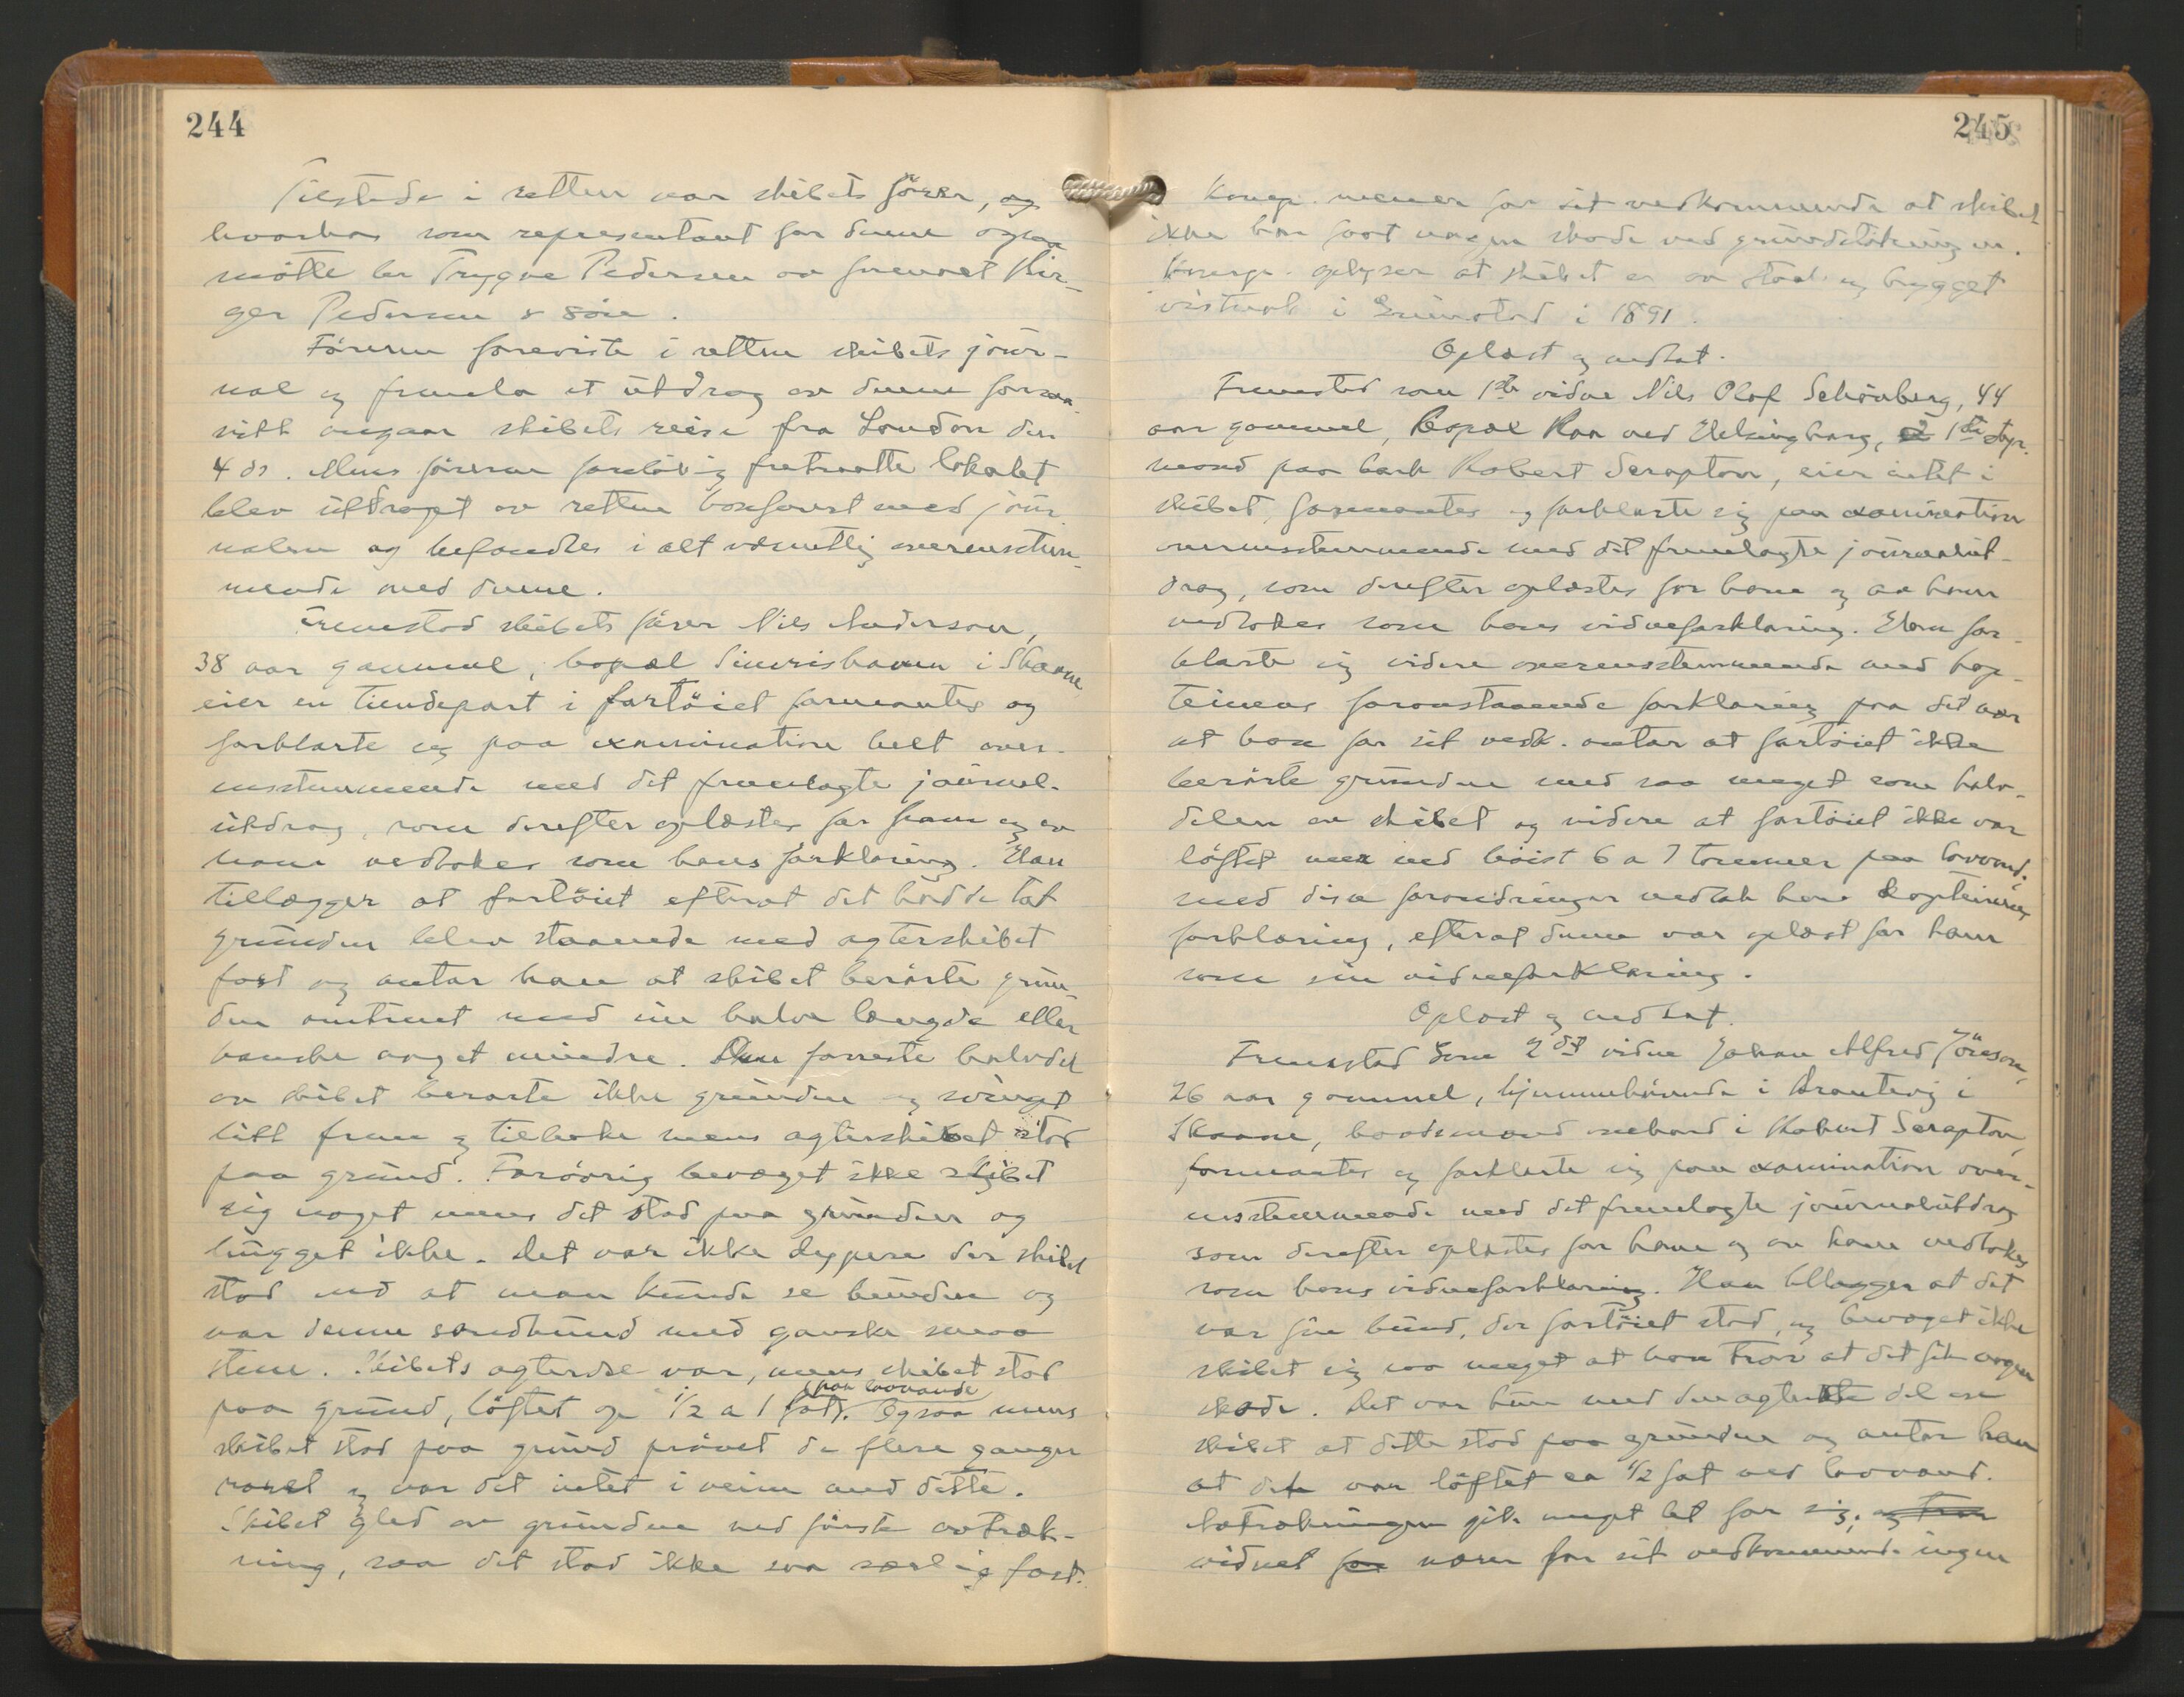 244
Tilstede i retten var skibets förer, og
hvorhos som representant for denne ogsaa
mötte hr Trygve Pedersen av firmaet Bir-
ger Pedersen & Sön.
Föreren foreviste i retten skibets jour-
nal og fremla et utdrag av denne forsaa-
vidt angaar skibets reise fra London den
4 ds. Mens föreren forelöbig fratraatte lokalet
blev utdraget av retten konferert med jour-
nalen og befandtes i alt væsentlig overenstem-
mende med denne.
Fremstod skibets förer Nils Anderson,
38 aar gammel, bopæl Simrishavnn i Skaane
eier en tiendepart i fartöiet formantes og
forklarte sig paa examination helt over-
ensstemmende med det fremlagte journal-
utdrag, som derefter oplæstes for ham og av
ham vedtokes som hans forklaring. Han
tillægger at fartöiet efterat det hadde tat
grunden blev staaende med agterskibet
fast og antar han at skibet berörte grun-
den omtrent med sin halve længde eller
kanske noget mindre. Den forreste halvdel
av skibet berørte ikke grunden og svinget
litt frem og tilbake mens agterskibet stod
paa grund. Forövrig bevæget ikke skibet
sig noget mens det stod paa grunden og
hugget ikke. Det var ikke dypere der skibet
stod end at man kunde se bunden og
var denne sandbund med ganske smaa
stene. Skibets agterdel var, mens skibet stod
(paa lavvande)
paa grund, löftet op 1/2 a 1 fot. Ogsaa mens
skibet stod paa grund prövet de flere ganger
roret og var det intet i veien med dette.
Skibet gled av grunden ved förste avtræk-
ning, saa det stod ikke saa særlig fast.
245
Komp. mener for sit vedkommende at skibet
ikke har faat nogen skade ved grundstötningen.
Komp. oplyser at skibet er av staal og bygget
vistnok i Grimstad i 1891.
Oplæst og vedtat.
Fremstod som 1ste vidne Nils Olof Schönberg, 44
aar gammel, Bopæl Raa ved Helsingborg, 1ste styr-
mand paa bark Robert Scrapton, eier intet i
skibet, formantes og forklarte sig paa examination
overensstemmende med det fremlagte journalut-
drag, som derefter oplæstes for ham og av ham
vedtokes som hans vidneforklaring. Han for-
klarte sig videre overensstemmende med kap-
teinens foranstaaende forklaring paa det nær
at han for sit vedk. antar at fartöiet ikke
berörte grunden med saa meget som halv-
delen av skibet og videre at fartöiet ikke var
löftet mer end höist 6 a 7 tommer paa lavvand;
med disse forandringer vedtok han kapteinens
forklaring, efterat denne var oplæst for ham
som sin vidneforklaring.
Oplæst og vedtat.
Fremstod som 2det vidne Johan Alfred Jöneson,
26 aar gammel, hjemmehörende i Brantevig i
Skaane, baadsmand ombord i Robert Scrapton,
formantes og forklarte sig paa examination over-
ensstemmende med det fremlagte journalutdrag
som derefter oplæstes for ham og av ham vedtokes
som hans vidneforklaring. Han tillægger at det
var fin bund, der fartöiet stod, og bevæget ikke
skibet sig saa meget at han tror at det fik nogen
skade. Det var kun med den agterste del av
skibet at dette stod paa grunden og antar han
at det var löftet ca 1/2 fot ved lavvand.
Avtrækningen gik meget let for sig, og tror
vidnet for nærer for sit vedkommende ingen